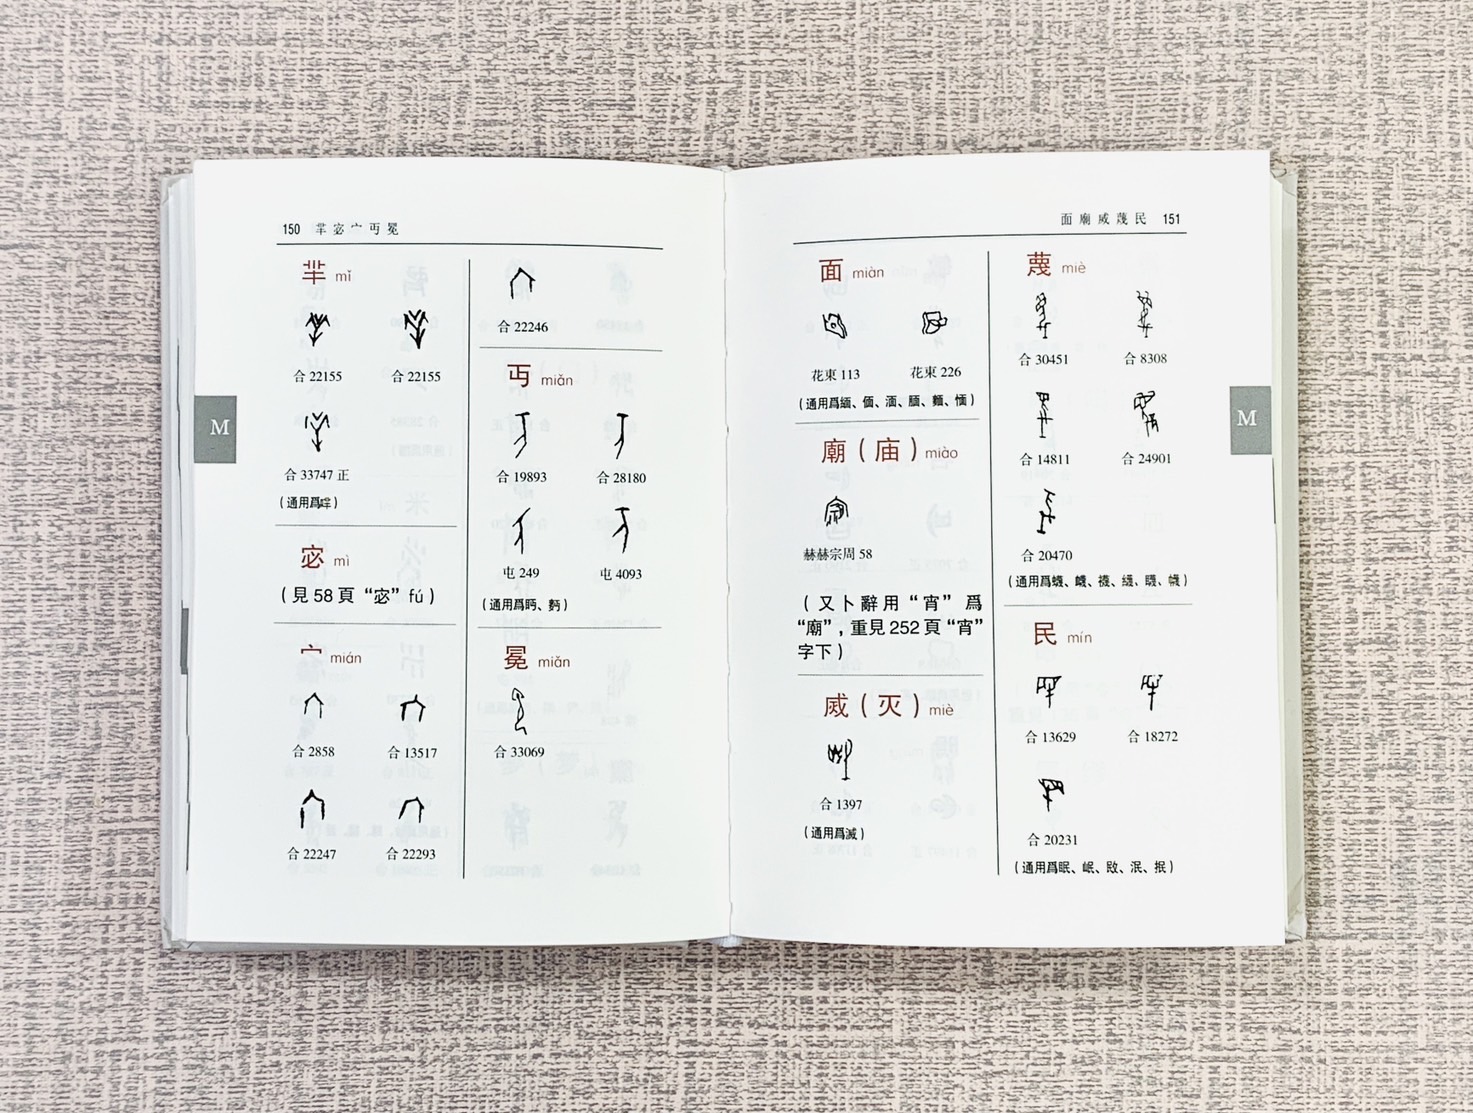 150 羋宓宀丏冕
M
羋 mǐ
合 22155 合 22155
合 33747 正
宓 mì
(見58頁“宓”fú)
宀 mián
合 2858 合 13517
合 22247 合 22293
合 22246
丏 miǎn
合 19893 合 28180
屯 249 屯 4093
(通用爲眄、麪)
冕 miǎn
合 33069
面廟烕蔑民 151
M
面 miàn
花東 113 花東 226
(通用爲緬、偭、湎、腼、麵、愐)
廟(庙) miào
赫赫宗周 58
(又卜辭用“宵”爲
“廟”,重見252頁“宵”
字下)
烕(灭) miè
合 1397
(通用爲滅)
蔑 miè
合 30451 合 8308
合 14811 合 24901
合 20470
民 mín
合 13629 合 18272
合 20231
(通用爲眠、岷、敃、泯、抿)